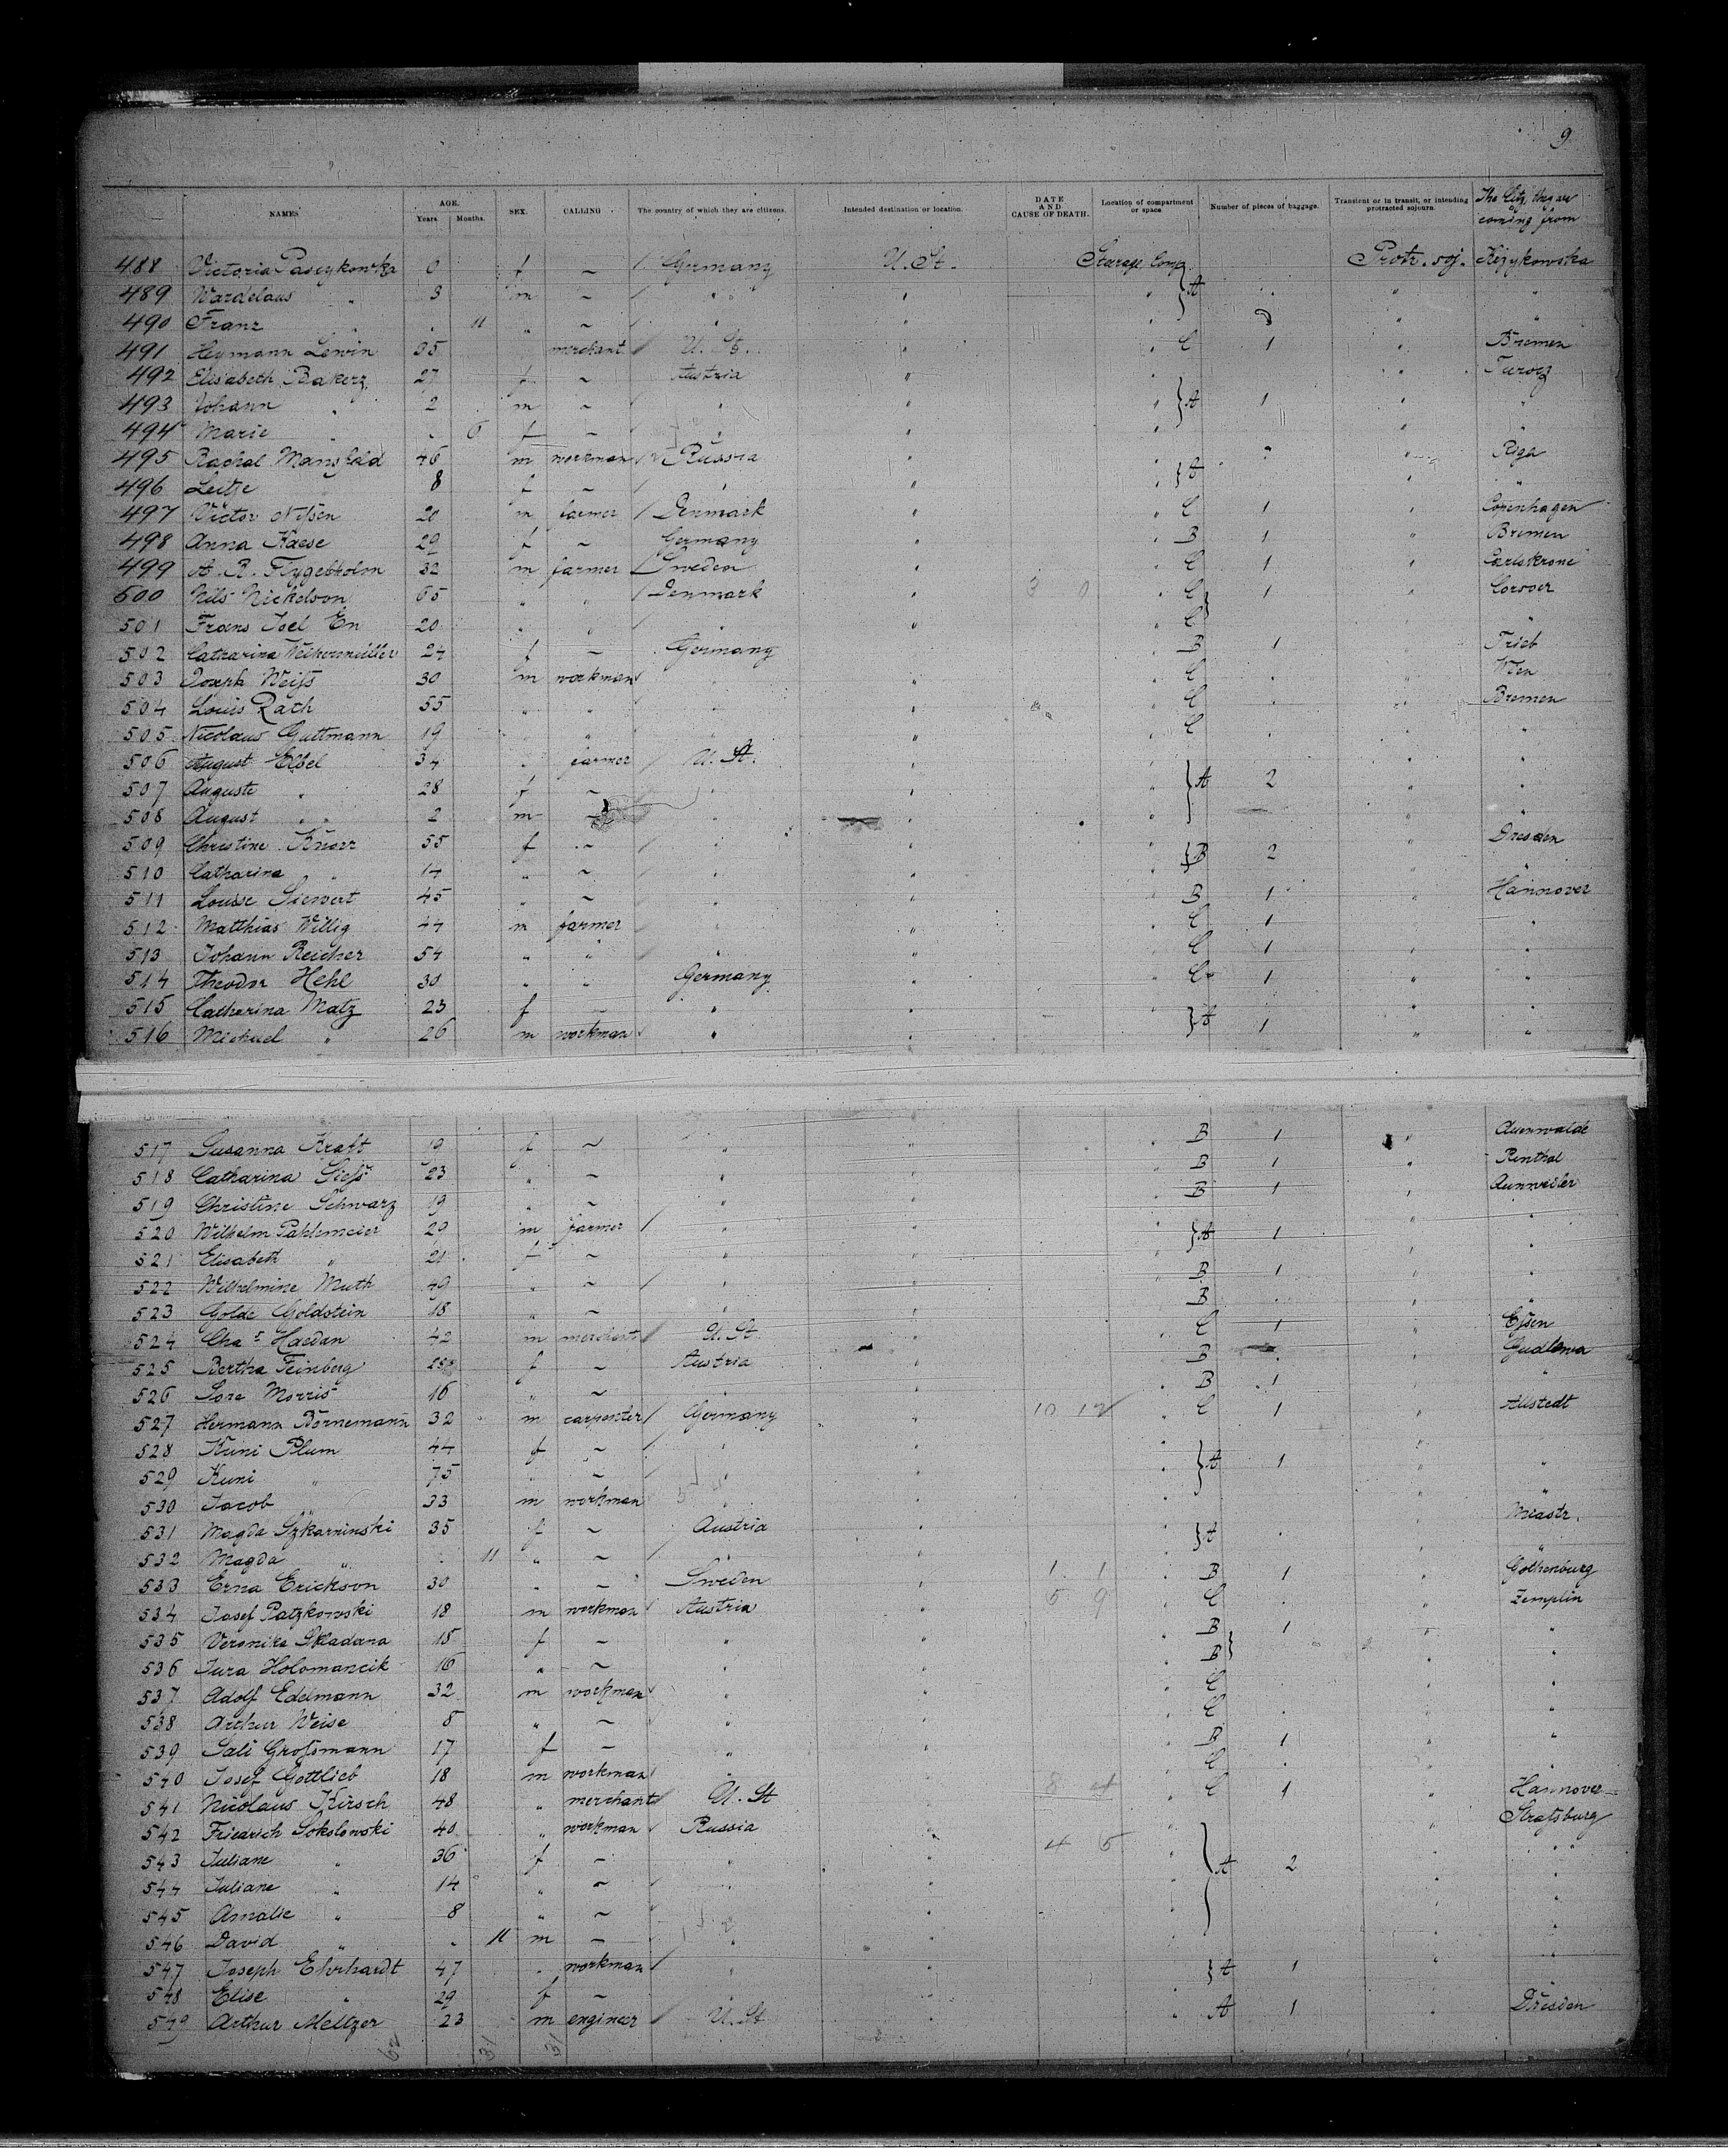 9
NAMES AGE. Years Months. SEX. CALLING The country of which they are citizens. Intended destination or location. DATE AND CAUSE OF DEATH. Location of compartment or space Number of pieces of baggage. Transient or in transit, or intending protracted sojourn. The City they are coming from
488 Victoria 0 f ~ / Germany U. St. Protr. soj.
489 Wardelaus " 3 m ~ / " " " } A " "
490 Franz " 11 " ~ / " " " "
491 Heymann Lewin 35 merchant / U. St. " C 1 " Bremen
492 Elisabeth Bakerz 27 f ~ Austria " " Turocz
493 Johann " 2 m ~ / " " } A 1 " "
494 Marie " 6 f ~ / " " " "
495 Rachal Mansfeld 46 m workman / Russia " " " Riga
496 8 f ~ / " " } A " "
497 Victor Nilsen 20 m farmer / Denmark " C 1 " Copenhagen
498 Anna Kaese 29 f ~ Germany " B 1 " Bremen
499 A. R. 32 m farmer / Sweden " C 1 " Carlskrone
500 Nils Nickelson 65 " " / Denmark " 3 0 C 1 Corsoer
501 Frans Joel En 20 " " / " " C "
502 Catharina 24 f ~ Germany B 1 Trieb
503 Joseph Weiss 30 m workman / " " C " Wien
504 Louis Rath 55 " " " " C " Bremen
505 Nicolaus Guttmann 19 " " " " C " "
506 August Elbel 34 " farmer / U. St. " "
507 Auguste " 28 f ~ " " } A 2 " "
508 August " 2 m ~ " " " "
509 Christine Knorr 55 f ~ / " " " Dresden
510 Catharina " 14 " ~ / " " } B 2 "
511 Louise Siewert 45 " ~ / " " B 1 " Hannover
512 Matthias Willig 44 m farmer " " C 1 "
513 Johann Reicher 54 " " / " " C 1 " "
514 Theodor Hehl 30 " " Germany " C 1 " "
515 Catharina Matz 23 f ~ " " " "
516 Michael " 26 m workman / " " } A 1 " "
517 Susanna Kraft 19 f ~ " " B 1 "
518 Catharina 23 " ~ " " B 1 "
519 Christine Schwarz 19 " ~ " " B 1 "
520 Wilhelm Pahlmeier 29 m farmer / " " } A 1 " "
521 Elisabeth " 21 f ~ " " " "
522 Wilhelmine Muth 49 " ~ / " " B 1 " "
523 Golde Goldstein 18 " ~ " " B " "
524 Chas Haedan 42 m merchant / U. St. " C 1 "
525 Bertha Feinberg f ~ Austria " B " Gudlawa
526 Sore Morris 16 " ~ " " B 1 "
527 Hermann Bornemann 32 m carpenter / Germany " 10 12 C 1 Allstedt
528 Kuni Plum 44 f ~ / " " "
529 Kuni " 75 " ~ / " " } A 1 " "
530 Jacob " 33 m workman " " "
531 Magda Szkarninski 35 f ~ Austria " } A "
532 Magda " 11 " ~ / " " " "
533 Erna Erickson 30 " ~ Sweden " 1 1 B 1 " Gothenburg
534 Josef Patzkowski 18 m workman / Austria " 5 9 C " Zemplin
535 Veronika Skladana 15 f ~ " " B 1 " "
536 Jura Holomancik 16 " ~ " " B " "
537 Adolf Edelmann 32 m workman / " " C " "
538 Arthur Weise 8 " ~ / " " C " "
539 Sali Grossmann 17 f ~ " " B 1 " "
540 Josef Gottlieb 18 m workman / " " C " "
541 Nicolaus Kirsch 48 " merchant / U. St " 8 C 1 " Hannover
542 Friedrich Sokolowski 40 " workman / Russia " Strassburg
543 Juliane " 36 f ~ / " " 4 5 } A 2 " "
544 Juliane " 14 " ~ / " " " "
545 Amalie " 8 " ~ / " " " "
546 David " 11 m ~ / " " " "
547 Joseph Ehrhardt 47 " workman / " " } A 1 " "
548 Elise " 29 f ~ " " "
549 Arthur Meltzer 23 m engineer / U. St " A 1 " Dresden
62 31 31